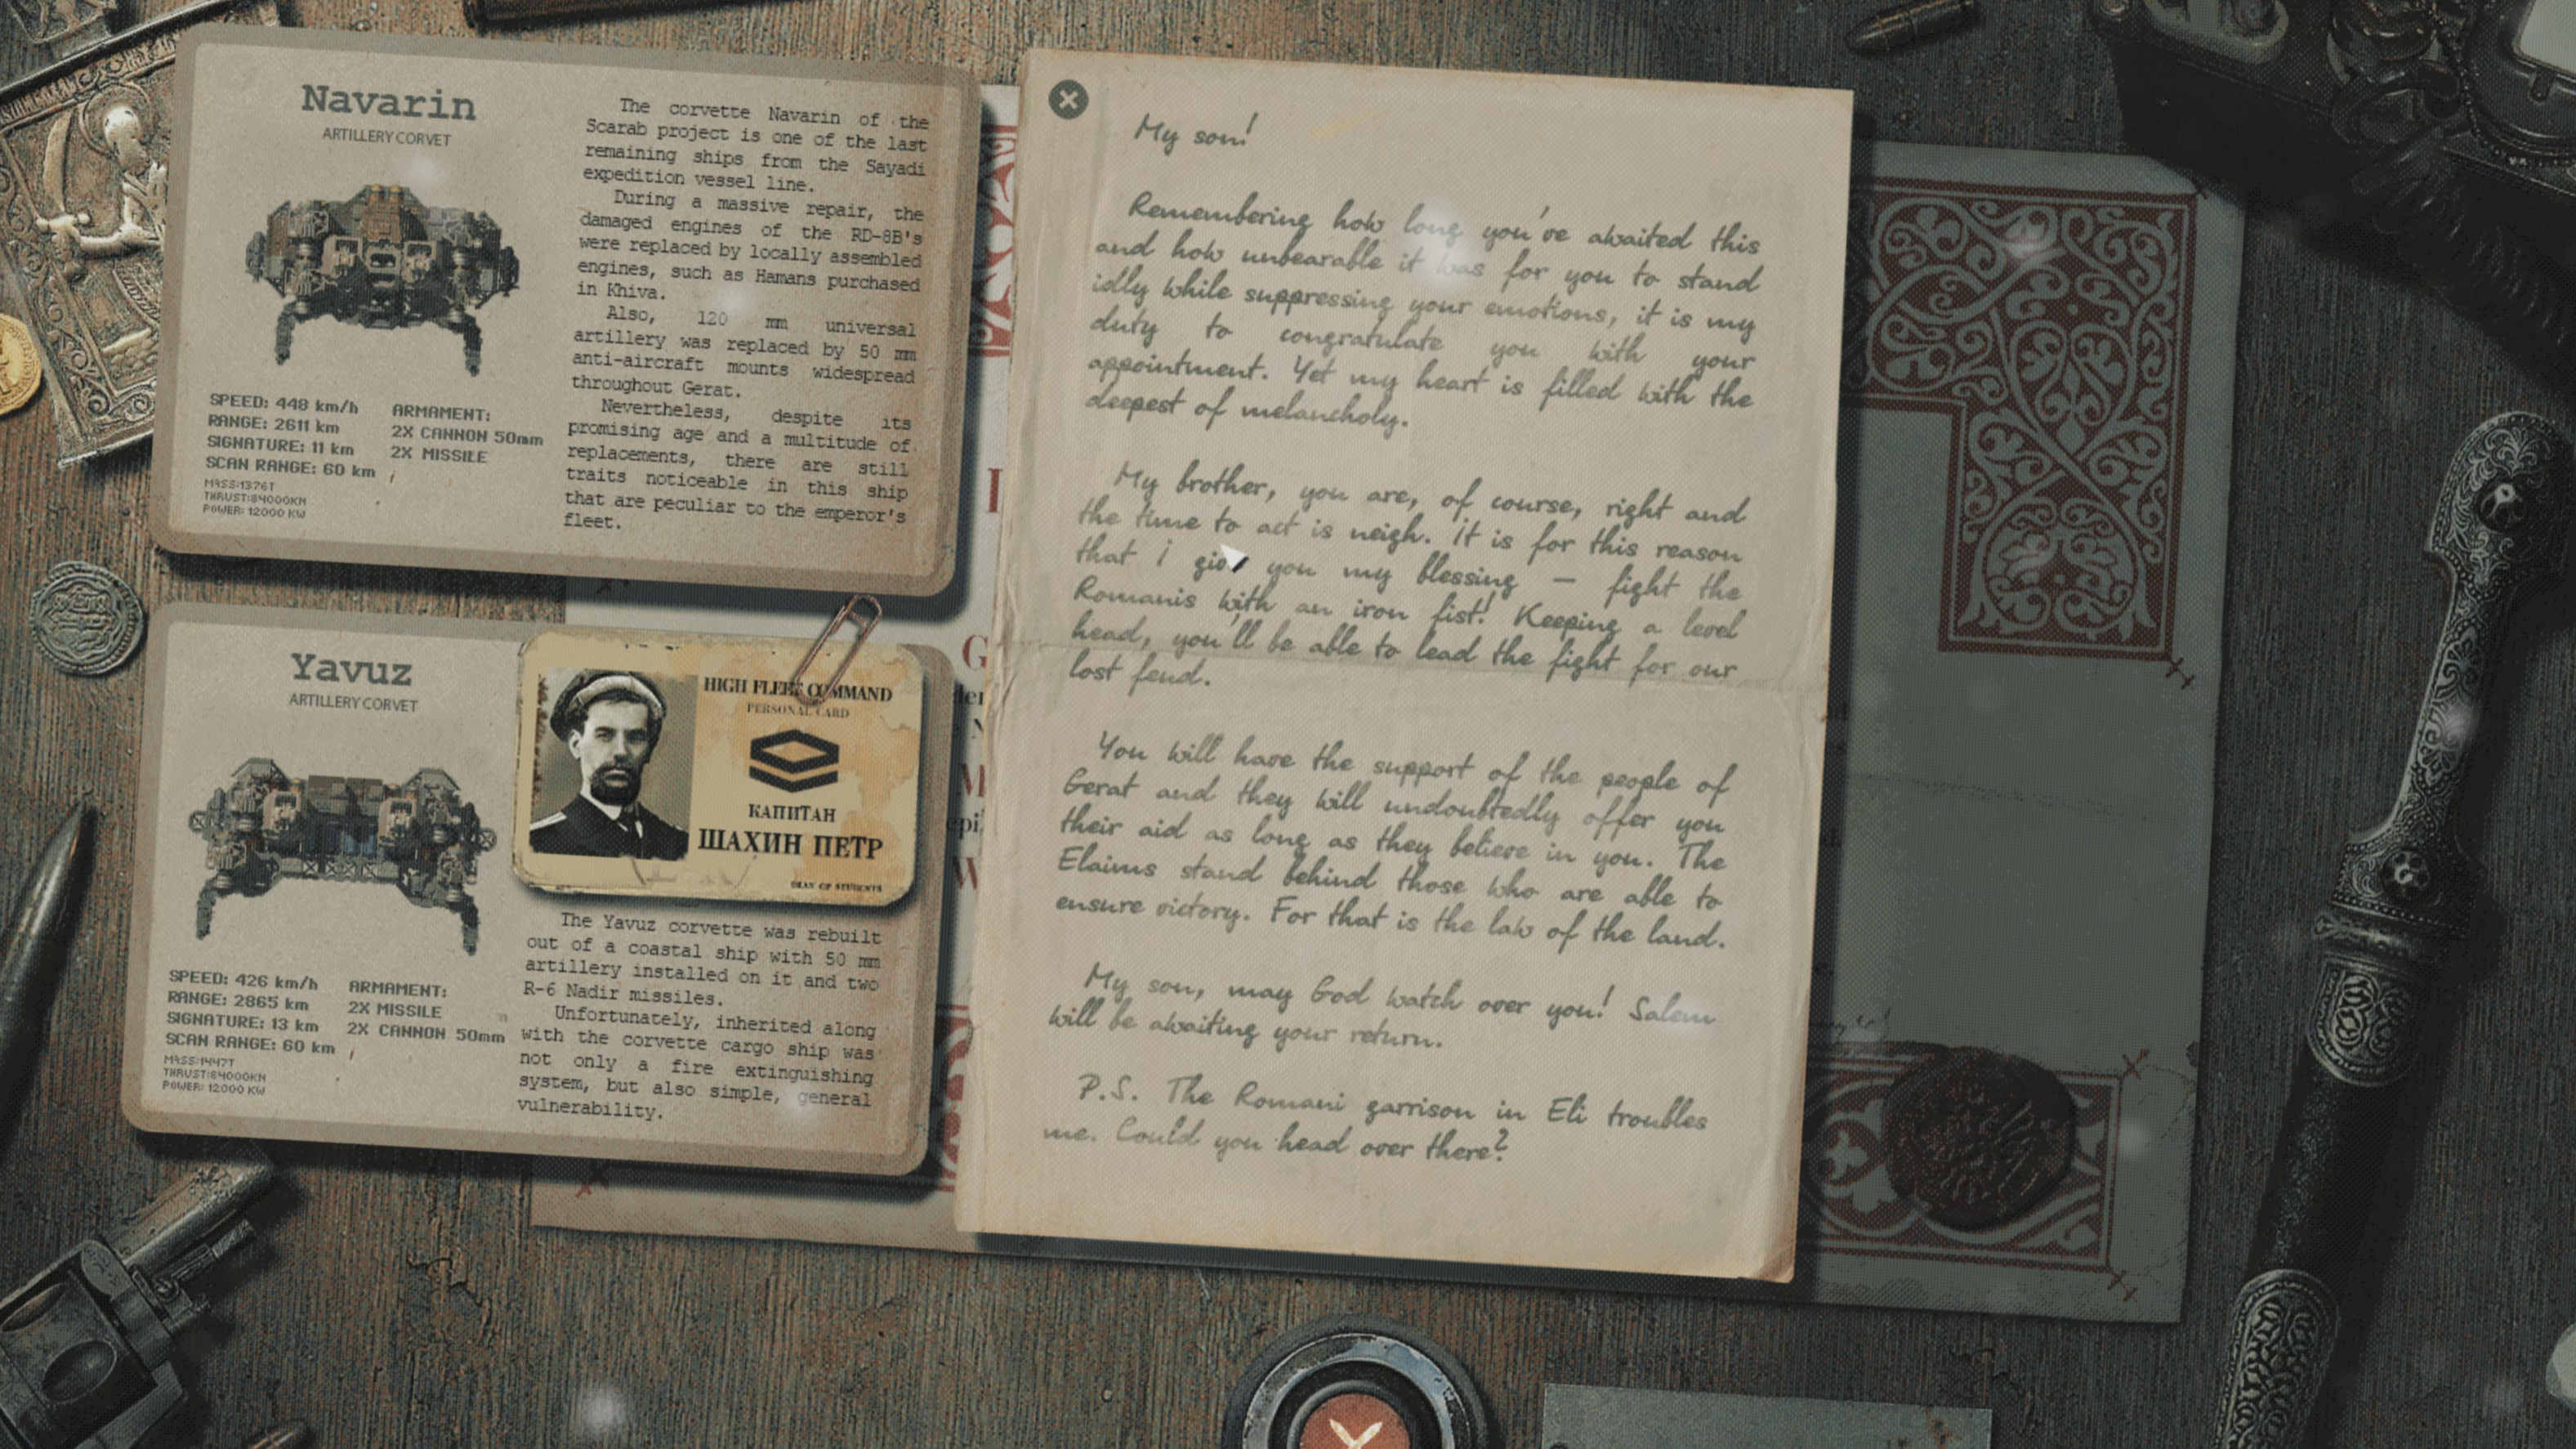 Navarin
ARTILLERY CORVET
SPEED: 448 km/h
RANGE: 2611 km
SIGNATURE: 11 km
SCAN RANGE: 60 km
MASS:1376T
THRUST:84000KN
POWER: 12000 KW
ARMAMENT:
2X CANNON 50mm
2X MISSILE
The corvette Navarin of the
Scarab project is one of the last
remaining ships from the Sayadi
expedition vessel line.
During a massive repair, the
damaged engines of the RD-8B's
were replaced by locally assembled
engines, such as Hamans purchased
in Khiva.
Also, 120 mm universal
artillery was replaced by 50 mm
anti-aircraft mounts widespread
throughout Gerat.
Nevertheless, despite its
promising age and a multitude of
replacements, there are still
traits noticeable in this ship
that are peculiar to the emperor's
fleet.
Yavuz
ARTILLERY CORVET
SPEED: 426 km/h
RANGE: 2865 km
SIGNATURE: 13 km
SCAN RANGE: 60 km
MASS:1447T
THRUST:84000KN
POWER: 12000 KW
ARMAMENT:
2X MISSILE
2X CANNON 50mm
HIGH FLEET COMMAND
PERSONAL CARD
КАПИТАН
ШАХИН ПЕТР
DEAN OF STUDENTS
The Yavuz corvette was rebuilt
out of a coastal ship with 50 mm
artillery installed on it and two
R-6 Nadir missiles.
Unfortunately, inherited along
with the corvette cargo ship was
not only a fire extinguishing
system, but also simple, general
vulnerability.
My son!
Remembering how long you've awaited this
and how unbearable it was for you to stand
idly while suppressing your emotions, it is my
duty to congratulate you with your
appointment. Yet my heart is filled with the
deepest of melancholy.
My brother, you are, of course, right and
the time to act is neigh. It is for this reason
that i give you my blessing — fight the
Romanis with an iron fist! Keeping a level
head, you'll be able to lead the fight for our
lost feud.
You will have the support of the people of
Gerat and they will undoubtedly offer you
their aid as long as they believe in you. The
Elaims stand behind those who are able to
ensure victory. For that is the law of the land.
My son, may God watch over you! Salem
will be awaiting your return.
P.S. The Romani garrison in Eli troubles
me. Could you head over there?